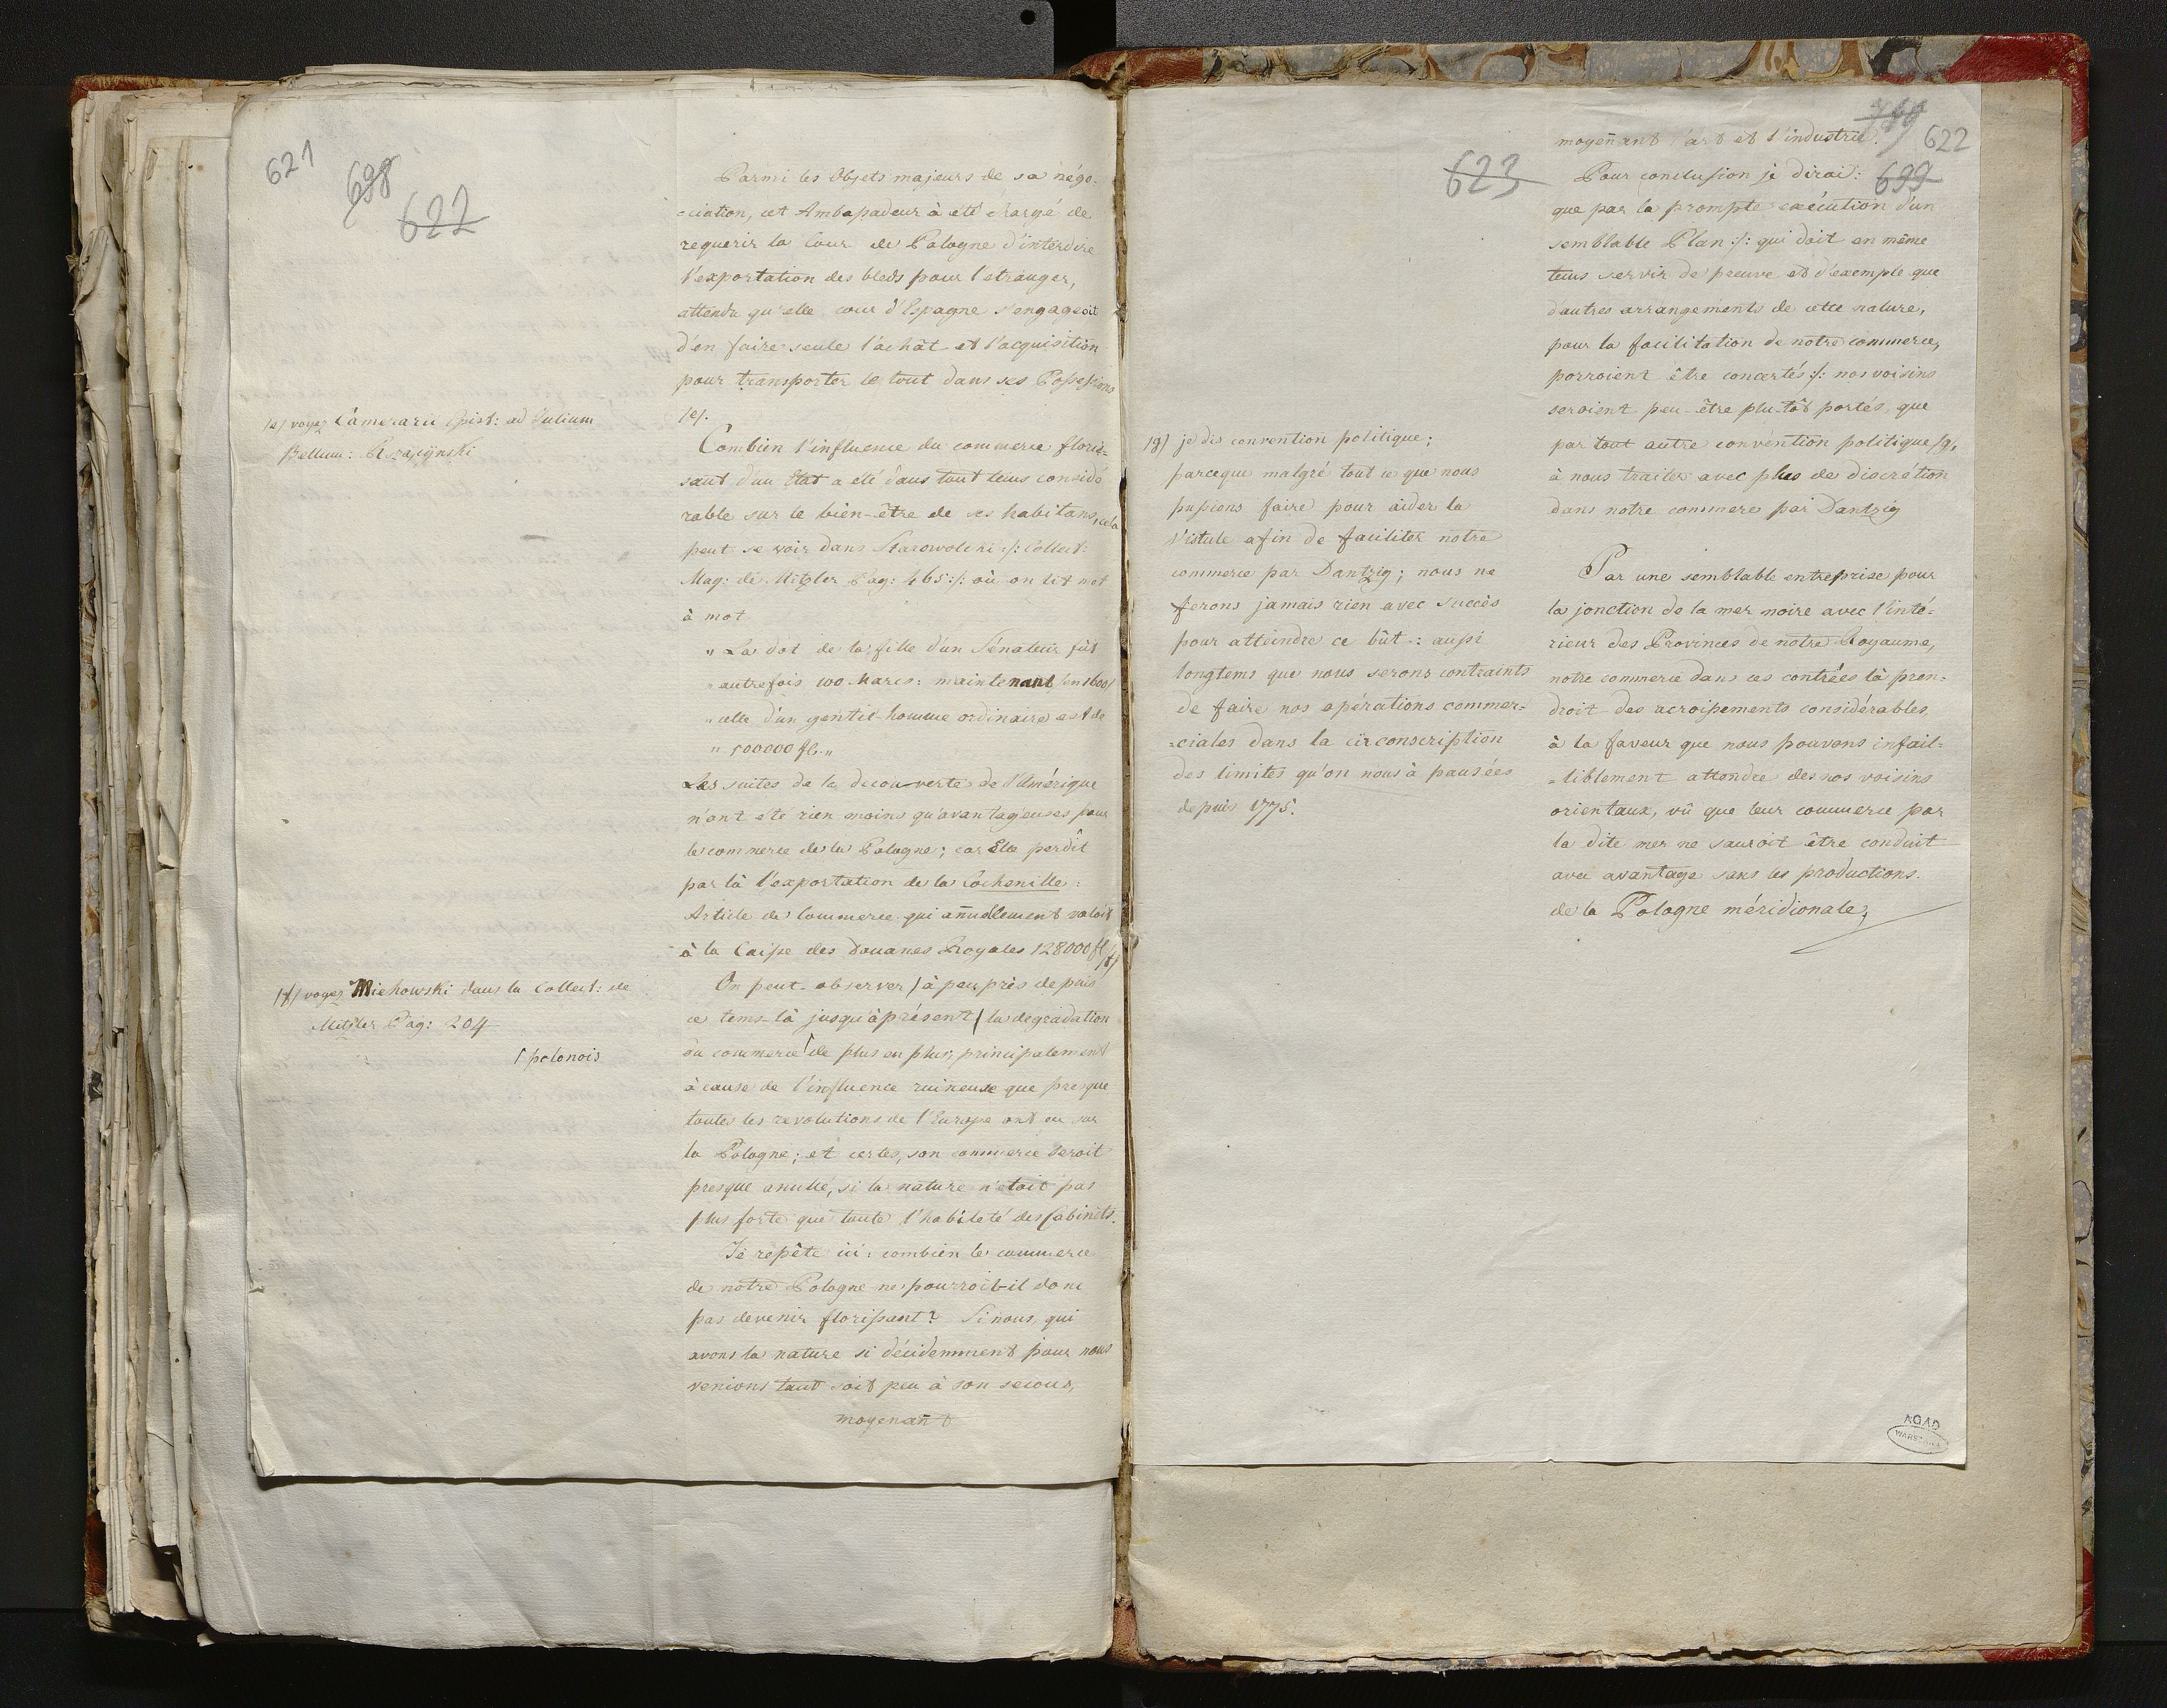 621
698
622
Parmi les Objets majeurs de sa négo-
-ciation, cet Ambaßadeur à été chargé de
requerir la Cour de Pologne d'interdire
l'exportation des bleds pour l'etranger,
attendu qu'elle cour d'Espagne s'engageoit
d'en faire seule l'achât et l'acquisition
pour transporter le tout dans ses Poßeßions
/e/.
/e/ voyez Camerarii Epist: ad Iulium
Bellum: Rzączynski
Combien l'influence du commerce floris=
sant d'un Etat a été dans tout tems considé
rable sur le bien-être de ses habitans, cela
peut se voir dans Starowolski :/: Collect:
Mag: de Mitzler Pag: 465 :/: où on lit mot
à mot
" La dot de la fille d'un Sénateur fût
" autrefois 100 Marcs: maintenant /en 1600/
" celle d'un gentil-homme ordinaire est de
" 500000 fl. "
Les suites de la decouverte de l'Amérique
n'ont été rien moins qu'avantageuses pour
le commerce de la Pologne; car Elle perdit
par là l'exportation de la Cochenille:
Article de Commerce qui añuellement valoit
à la Caiße des Douanes Royales 128000 fl /f/
/f/ voyez Miehowski dans la Collect: de
Mitzler Pag: 204
On peut observer / à peu près depuis
ce tems-là jusqu'àprésent / la degradation
du commerce ⌈ de plus en plus, principalement
⌈ polonois
à cause de l'influence ruineuse que presque
toutes les revolutions de l'Europe ont eu sur
la Pologne; et certes, son commerce seroit
presque anullé, si la nature n'etoit pas
plus forte que toute l'habileté des Cabinets.
Je repête ici: combien le commerce
de notre Pologne ne pourroit-il donc
pas devenir florißant? Si nous, qui
avons la nature si décidemment pour nous
venions tant soit peu à son secours,
moyenañt
622
623
699
moyeñant l'art et l'industrie.
Pour conclusion je dirai:
que par la prompte exécution d'un
semblable Plan :/: qui doit en même
tems servir de preuve et d'exemple que
d'autres arrangements de cette nature,
pour la facilitation de notre commerce,
porroient être concertés :/: nos voisins
seroient peu-être plu-tôt portés, que
par tout autre convention politique /g/,
à nous traiter avec plus de discrétion
dans notre commerce par Dantzig
/g/ je dis convention politique;
parceque malgré tout ce que nous
pußions faire pour aider la
Vistule afin de faciliter notre
commerce par Dantzig; nous ne
ferons jamais rien avec succès
pour atteindre ce bût: außi
longtems que nous serons contraints
de faire nos opérations commer=
=ciales dans la circonscription
des limites qu'on nous à pausées
depuis 1775.
Par une semblable entreprise pour
la jonction de la mer noire avec l'inté=
rieur des Provinces de notre Royaume,
notre commerce dans ces contrées là pren=
droit des acroißements considérables,
à la faveur que nous pouvons infail=
=liblement attendre des nos voisins
orientaux, vû que leur commerce par
la dite mer ne sauroit être conduit
avec avantage sans les productions
de la Pologne méridionale,
AGAD
WARSZAWA